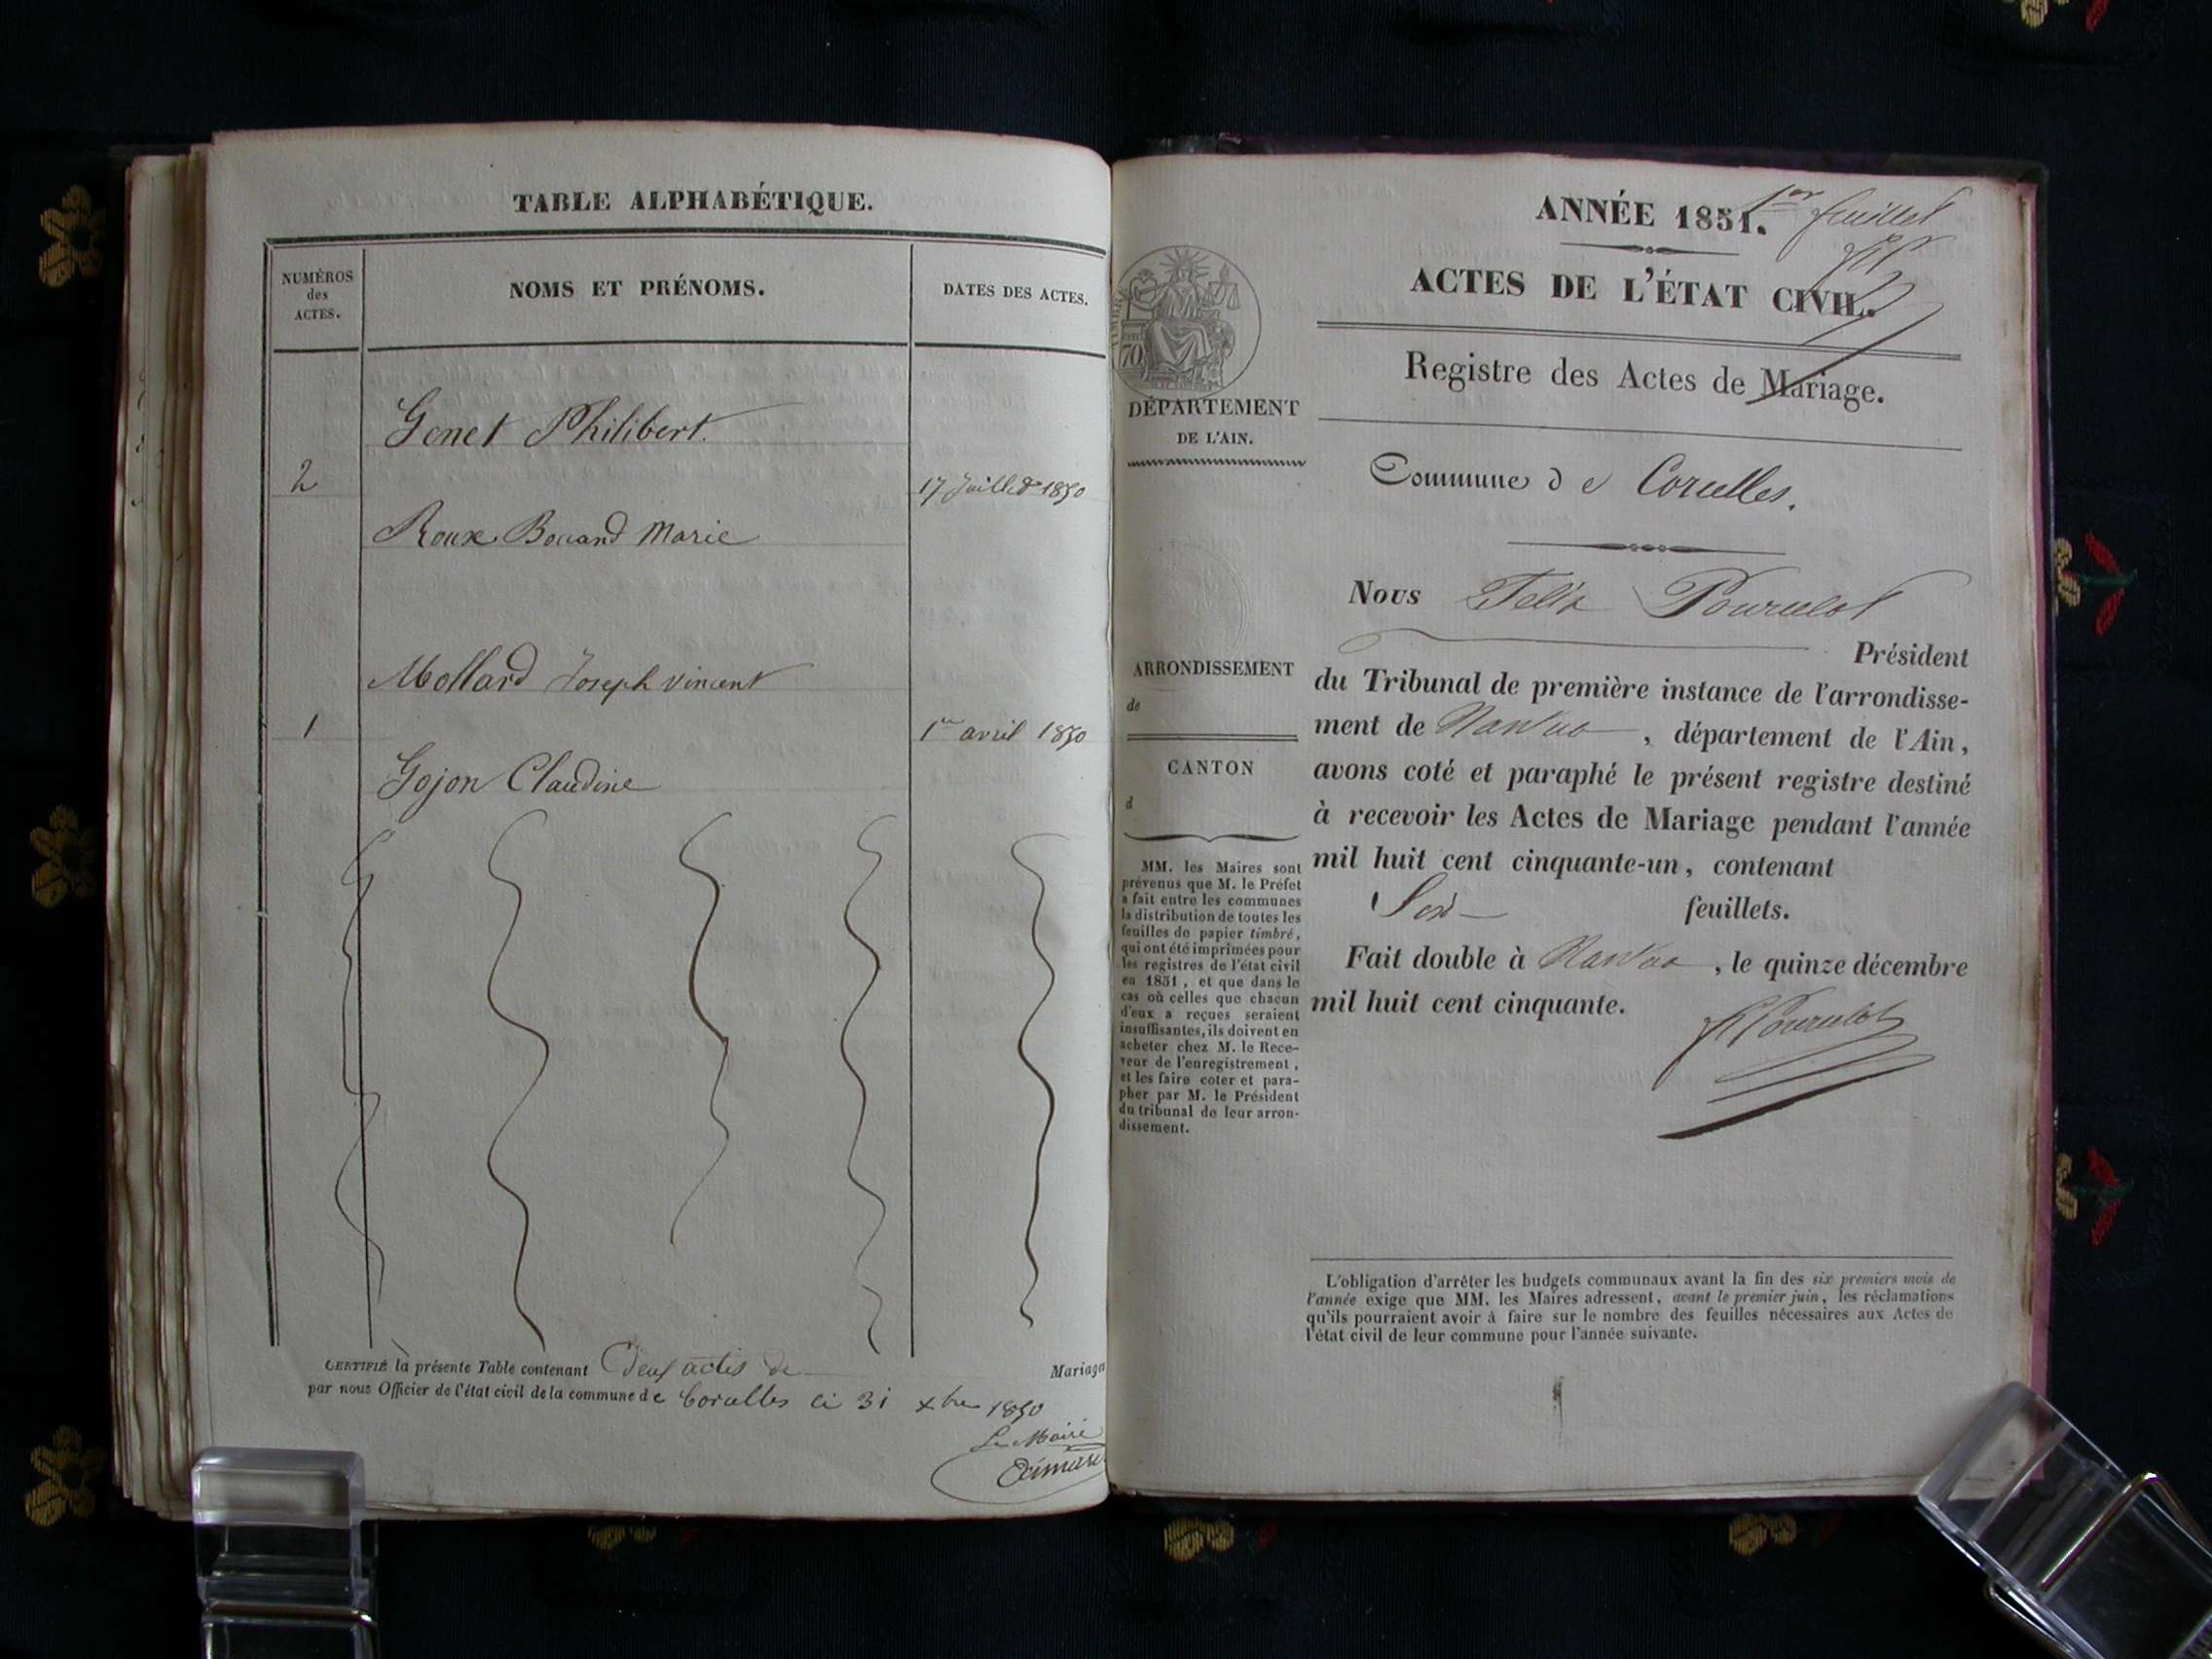 TABLE ALPHABÉTIQUE.
NUMÉROS
des
ACTES.
NOMS ET PRÉNOMS.
DATES DES ACTES.
Genet Philibert.
2
17 Juillet 1850
Roux Bouand Marie
Mollard Joseph Vincent
1
1er avril 1850
Gojon Claudine
CERTIFIÉ la présente Table contenant Deux actes de Mariages
par nous Officier de l'état civil de la commune de Corcelles ce 31 xbre 1850
Le Maire
ANNÉE 1851.
1er feuillet
ACTES DE L'ÉTAT CIVIL.
Registre des Actes de Mariage.
TIMBRE
70
DÉPARTEMENT
DE L'AIN.
Commune de Corcelles.
Nous Félix Pourcelot
Président
ARRONDISSEMENT
de
CANTON
d
du Tribunal de première instance de l'arrondisse-
ment de Nantua, département de l'Ain,
avons coté et paraphé le présent registre destiné
à recevoir les Actes de Mariage pendant l'année
mil huit cent cinquante-un, contenant
Six feuillets.
Fait double à Nantua, le quinze décembre
mil huit cent cinquante.
F Pourcelot
MM. les Maires sont
prévenus que M. le Préfet
a fait entre les communes
la distribution de toutes les
feuilles de papier timbré,
qui ont été imprimées pour
les registres de l'état civil
en 1851, et que dans le
cas où celles que chacun
d'eux a reçues seraient
insuffisantes, ils doivent en
acheter chez M. le Rece-
veur de l'enregistrement,
et les faire coter et para-
pher par M. le Président
du tribunal de leur arron-
dissement.
L'obligation d'arrêter les budgets communaux avant la fin des six premiers mois de
l'année exige que MM. les Maires adressent, avant le premier juin, les réclamations
qu'ils pourraient avoir à faire sur le nombre des feuilles nécessaires aux Actes de
l'état civil de leur commune pour l'année suivante.